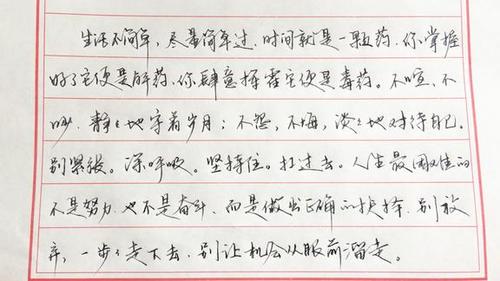 生活不简单,尽量简单过.时间就是一颗药.你掌握
好了它便是解药.你肆意挥霍它便是毒药。不喧,不
吵.静々地守着岁月;不怨,不悔,淡々地对待自己。
别紧张。深呼吸。坚持住。扛过去。人生最困难的
不是努力.也不是奋斗.而是做出正确的抉择.别放
弃,一步々走下去.别让机会从眼前溜走。